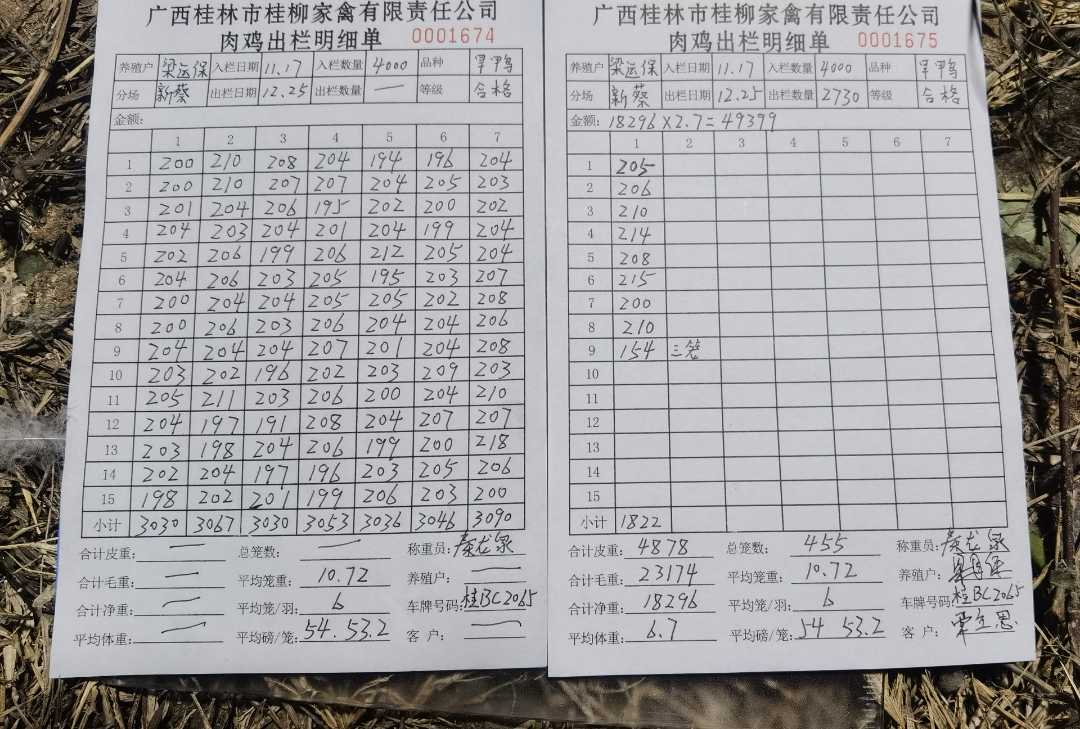 广西桂林市桂柳家禽有限责任公司
肉鸡出栏明细单 0001674
养殖户 梁运保 入栏日期 11.17 入栏数量 4000 品种 旱鸭
分场 新蔡 出栏日期 12.25 出栏数量 — 等级 合格
金额:
1 2 3 4 5 6 7
1 200 210 208 204 194 196 204
2 200 210 207 207 204 205 203
3 201 204 206 195 202 200 202
4 204 203 204 201 204 199 204
5 202 206 199 206 212 205 204
6 204 206 203 205 195 203 207
7 200 204 204 205 205 202 208
8 200 206 203 206 204 204 206
9 204 204 204 207 201 204 208
10 203 202 196 202 203 209 203
11 205 211 203 206 200 204 210
12 204 197 191 208 204 207 207
13 203 198 204 206 199 200 218
14 202 204 197 196 203 205 206
15 198 202 201 199 206 203 200
小计 3030 3067 3030 3053 3036 3046 3090
合计皮重: — 总笼数: — 称重员: 秦龙泉
合计毛重: — 平均笼重: 10.72 养殖户: —
合计净重: — 平均笼/羽: 6 车牌号码: 桂BC2065
平均体重: — 平均磅/笼: 54.53.2 客户: —
广西桂林市桂柳家禽有限责任公司
肉鸡出栏明细单 0001675
养殖户 梁运保 入栏日期 11.17 入栏数量 4000 品种 旱鸭
分场 新蔡 出栏日期 12.25 出栏数量 2730 等级 合格
金额: 18296×2.7=49399
1 2 3 4 5 6 7
1 205
2 206
3 210
4 214
5 208
6 215
7 200
8 210
9 154 三笼
10
11
12
13
14
15
小计 1822
合计皮重: 4878 总笼数: 455 称重员: 秦龙泉
合计毛重: 23174 平均笼重: 10.72 养殖户:
合计净重: 18296 平均笼/羽: 6 车牌号码: 桂BC2065
平均体重: 6.7 平均磅/笼: 54 53.2 客户: